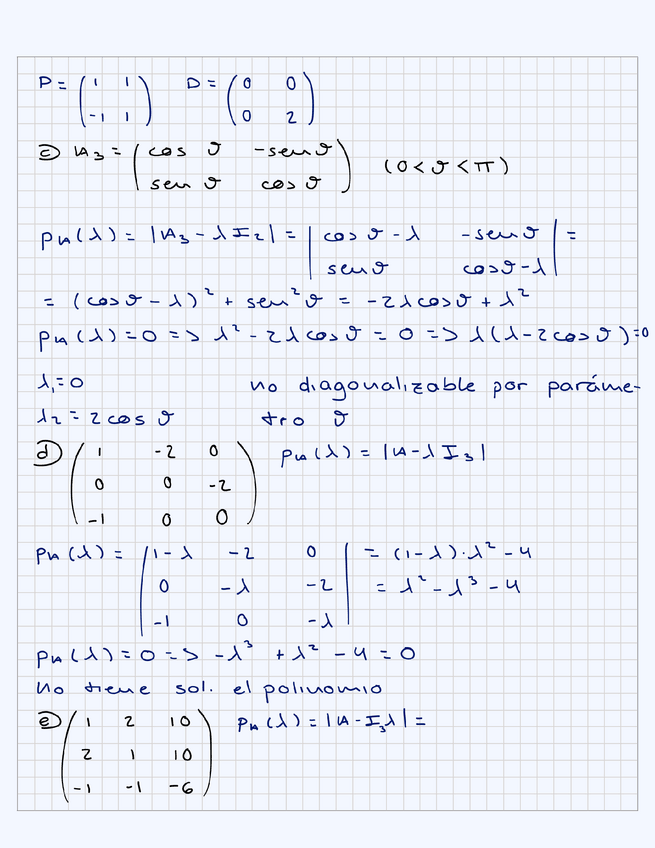 P = (1 1 / -1 1) D = (0 0 / 0 2)
c) A₃ = (cos ϑ -sen ϑ / sen ϑ cos ϑ) (0 < ϑ < π)
p_A(λ) = |A₃ - λI₂| = |cos ϑ - λ -sen ϑ / sen ϑ cos ϑ - λ| =
= (cos ϑ - λ)² + sen² ϑ = -2λcos ϑ + λ²
p_A(λ) = 0 => λ² - 2λcos ϑ = 0 => λ(λ - 2cos ϑ) = 0
λ₁ = 0 no diagonalizable por paráme-
λ₂ = 2 cos ϑ tro ϑ
d) (1 -2 0 / 0 0 -2 / -1 0 0) p_A(λ) = |A - λI₃|
p_A(λ) = |1 - λ -2 0 / 0 -λ -2 / -1 0 -λ| = (1 - λ)·λ² - 4
= λ² - λ³ - 4
p_A(λ) = 0 => -λ³ + λ² - 4 = 0
No tiene sol. el polinomio
e) (1 2 10 / 2 1 10 / -1 -1 -6) p_A(λ) = |A - I₃λ| =